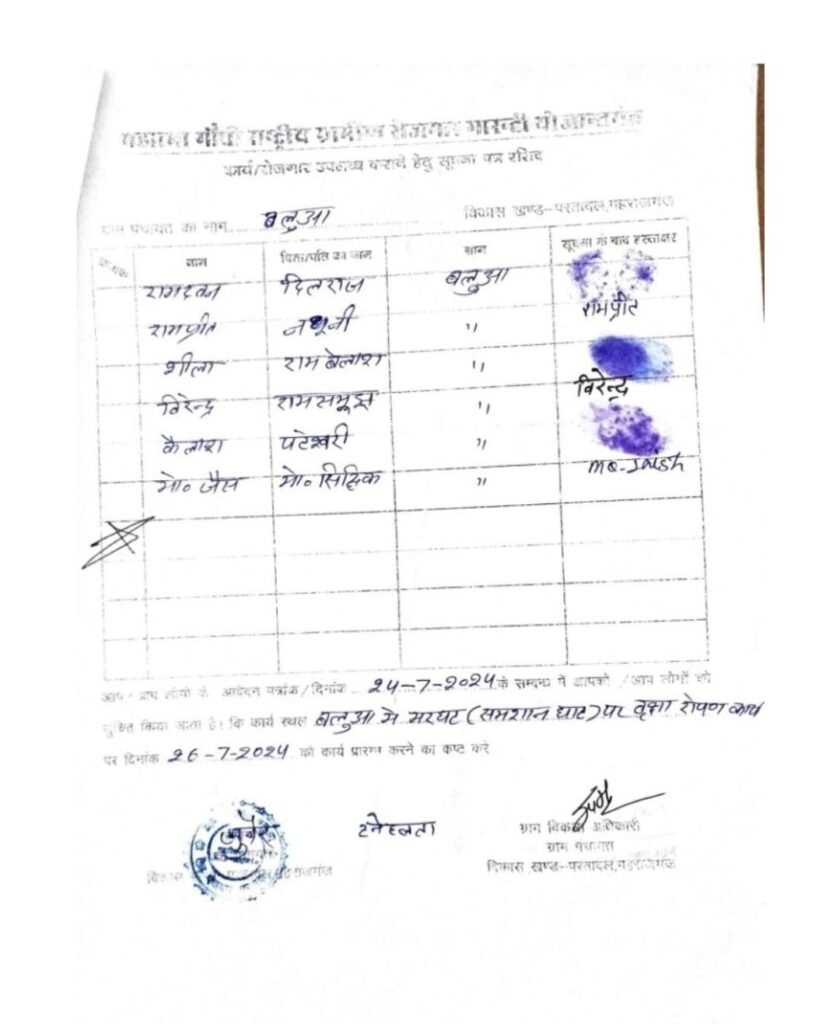 महात्मा गाँधी राष्ट्रीय ग्रामीण रोजगार गारन्टी योजान्तर्गत
कार्य/रोजगार उपलब्ध कराने हेतु सूचना पत्र रसिद
ग्राम पंचायत का नाम.... बलुआ विकास खण्ड--परतावल,महराजगंज
नाम पिता/पति का नाम ग्राम सूचना के बाद हस्ताक्षर
दिलराज बलुआ
रामप्रीत नथुनी " रामप्रीत
शीला राम बेलाश "
विरेन्द्र रामसमुझ " विरेन्द्र
कैलाश पटेश्वरी "
मो० जैस मो० सिद्दिक " MO-Jaish
आप/आप लोगो के आवेदन पत्रांक/दिनांक 24-7-2024 के सम्बन्ध में आपको /आप लोगों को
सुचित किया जाता है। कि कार्य स्थल बलुआ मे मरघट (समशान घाट) पर वृक्षा रोपण कार्य
पर दिनांक 26-7-2024 को कार्य प्रारम्भ करने का कष्ट करे
स्नेहलता ग्राम विकास अधिकारी
ग्राम पंचायत
विकास खण्ड--परतावल,महराजगंज